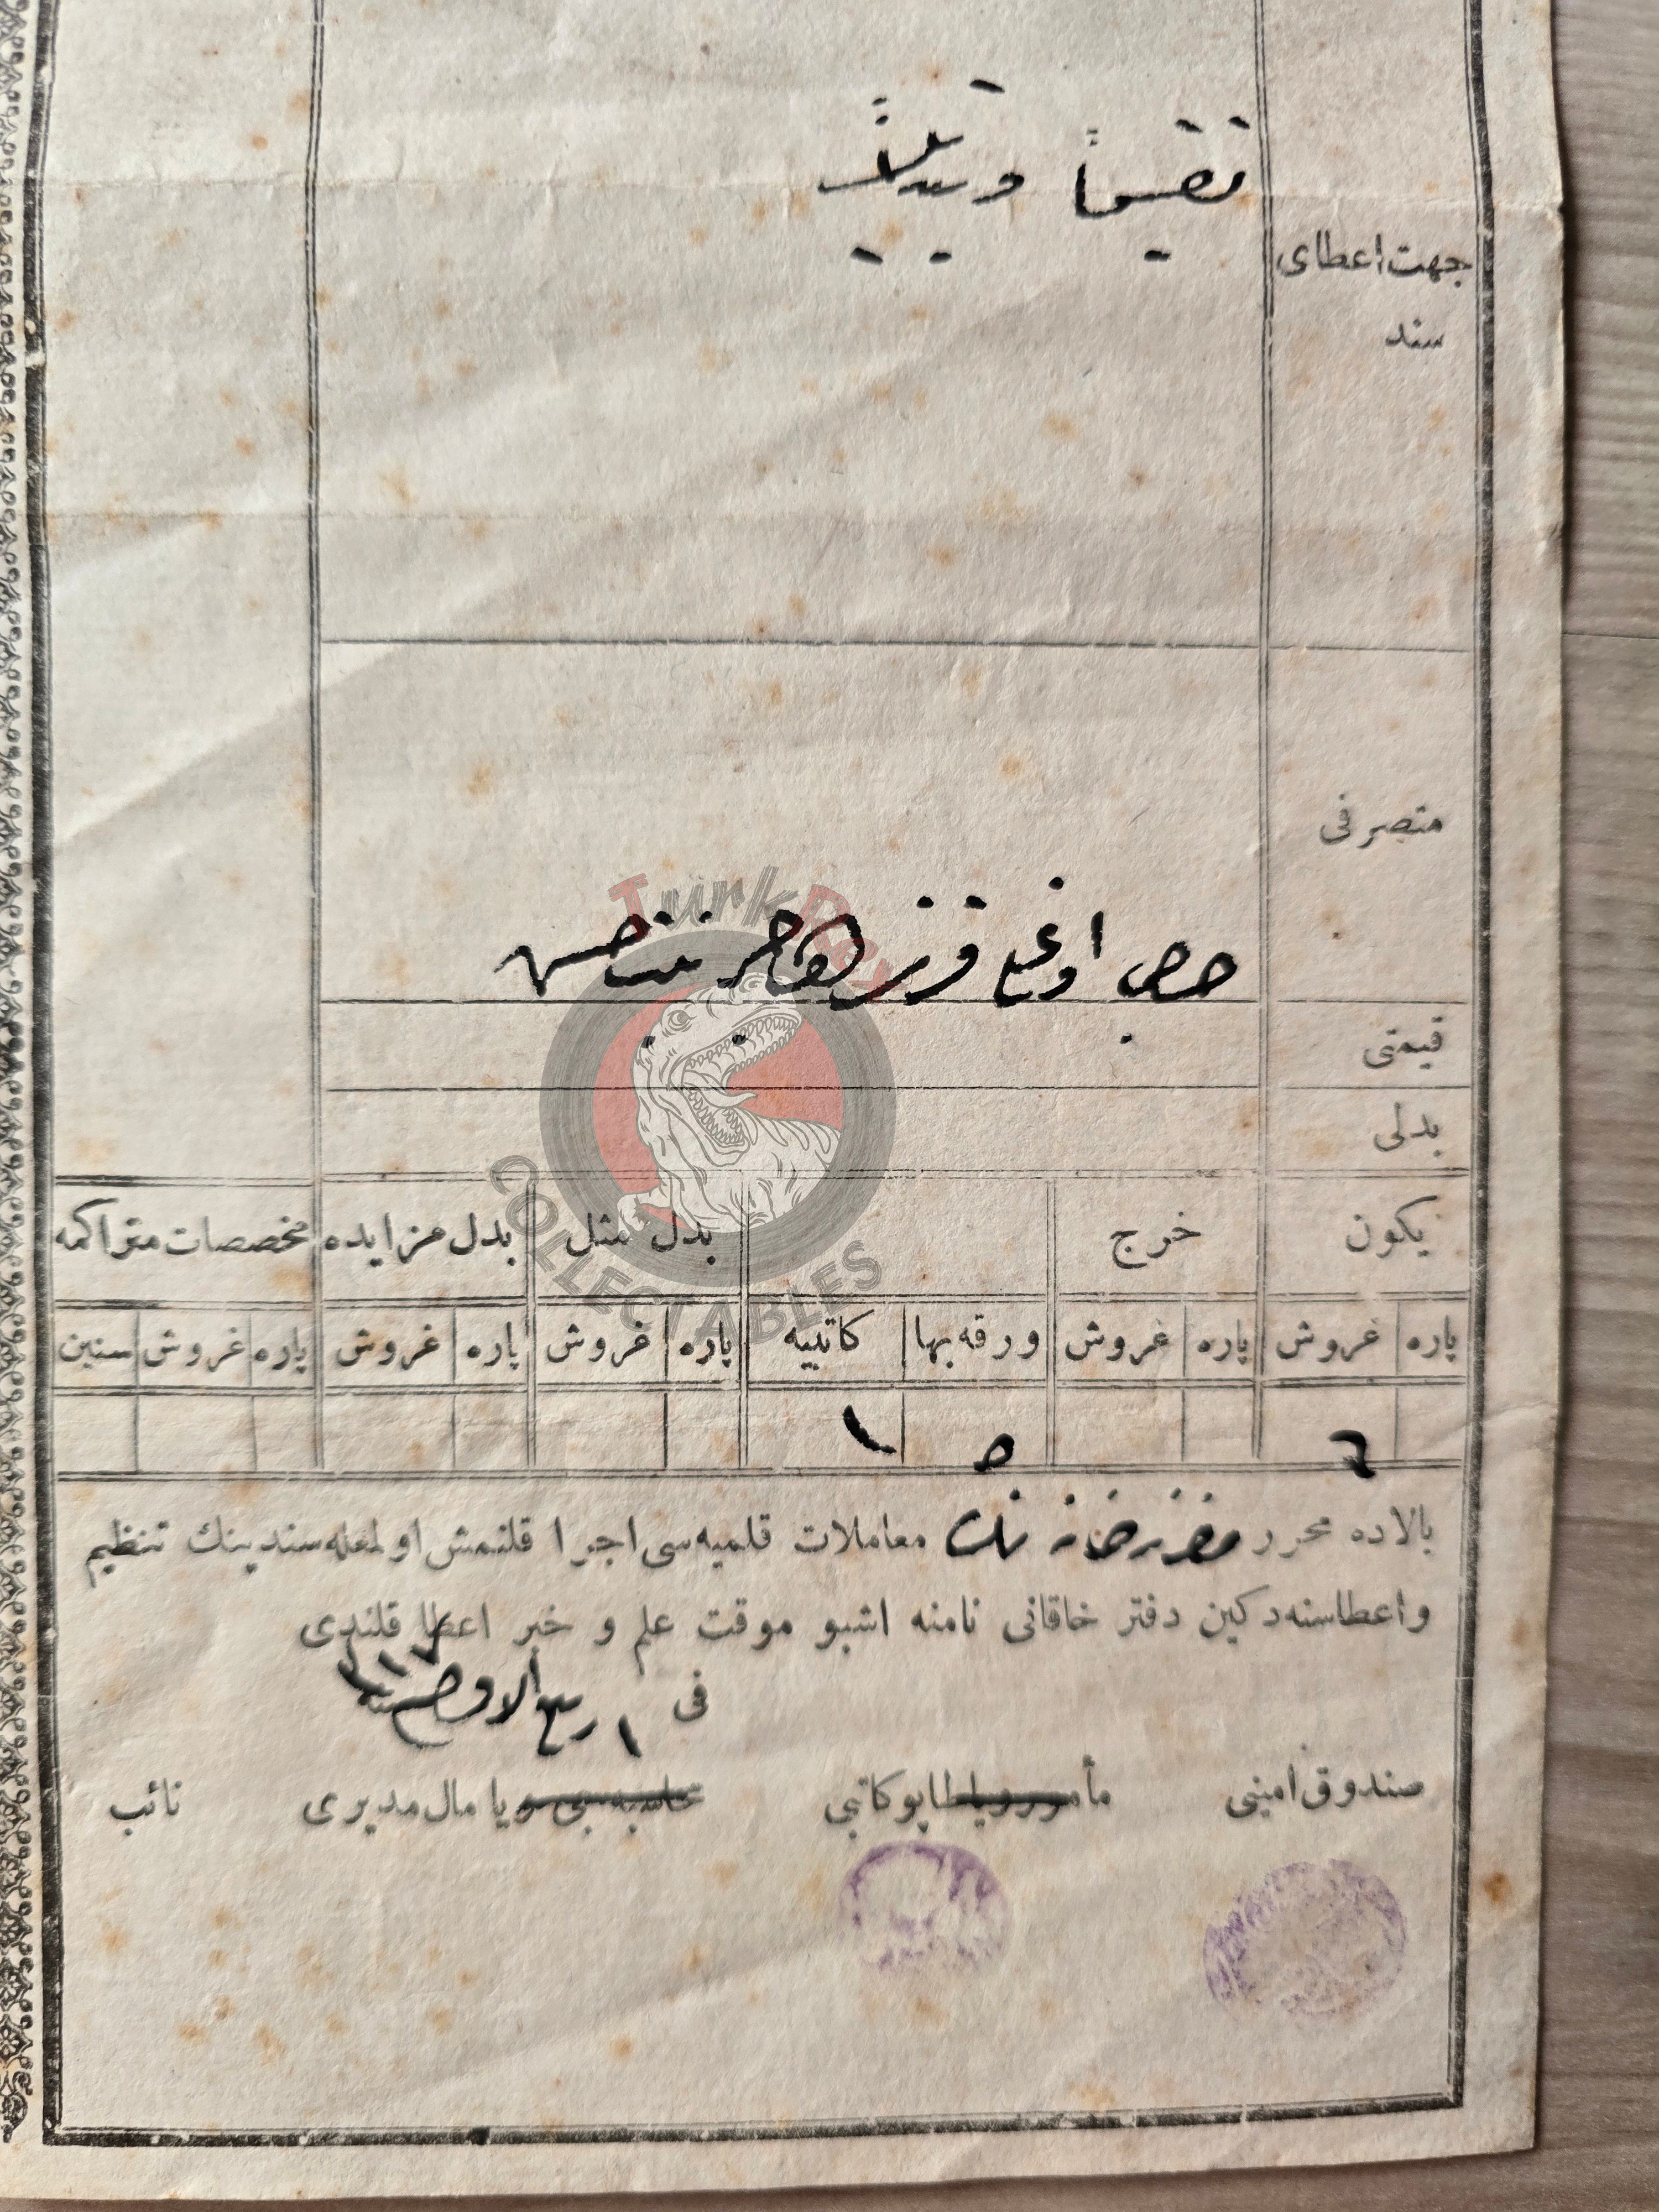 تقسیماً و تبدیلاً
جهت اعطای
سند
متصرفی
اوغلی
قیمتی
بدلی
یکون
خرج
بدل مثل
بدل مزایده
مخصصات متراکمه
پاره غروش پاره غروش ورقه بها کاتبیه پاره غروش پاره غروش پاره غروش سنین
٦ ٥ ١
بالاده محرر معاملات قلمیه سی اجرا قلنمش اولمغله سندینك تنظیم
و اعطاسنه دکین دفتر خاقانی نامنه اشبو موقت علم و خبر اعطا قلندی
فی ١ ربیع الاول سنه ٣١٧
صندوق امینی
مأمور ویا طاپو کاتبی
محاسبه جی ویا مال مدیری
نائب
TurkRex
COLLECTABLES